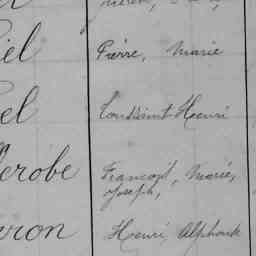 iel Pierre, Marie
el Toussaint Henri
erobe François, Marie,
Joseph,
ron Henri, Alphonse